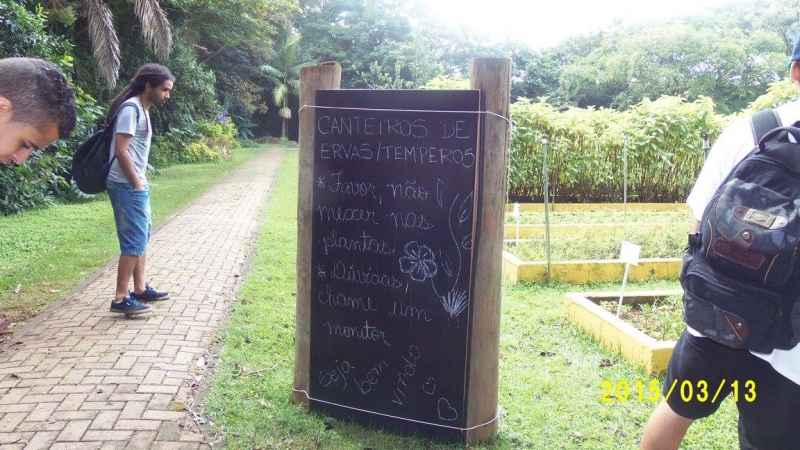 CANTEIROS DE
ERVAS/TEMPEROS
* Favor, não
mexer nas
plantas.
* Dúvidas,
chame um
monitor
seja bem vindo
2015/03/13